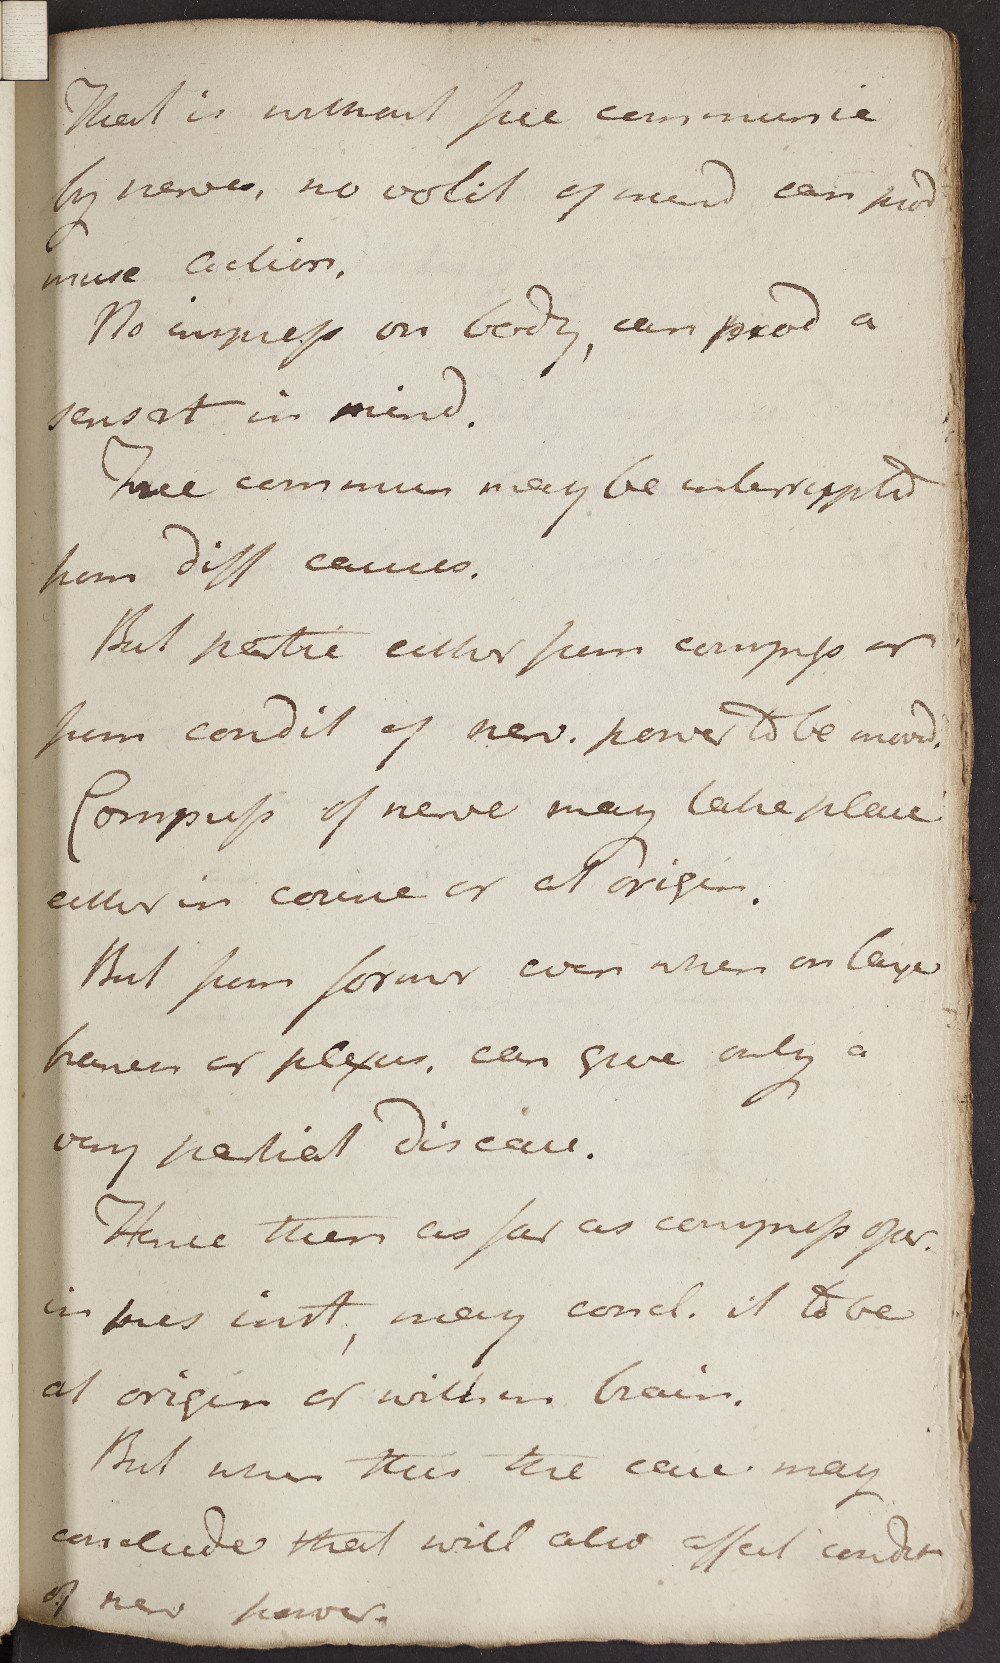 That is without free communic
by nerves, no volit of mind can prod
musc action.
No impress on body, can prod a
sensat in mind.
Free commun may be interruptd
from diff causes.
But partic either from compress or
from condit of nerv. power to be movd.
Compress of nerve may take place
either in course or at origin.
But from former even when on large
branch or plexus, can give only a
very partial disease.
Hence then as far as compress oper.
in pres inst, may concl. it to be
at origin or within brain.
But when this the case may
conclude that will also affect condit
of nerv power.